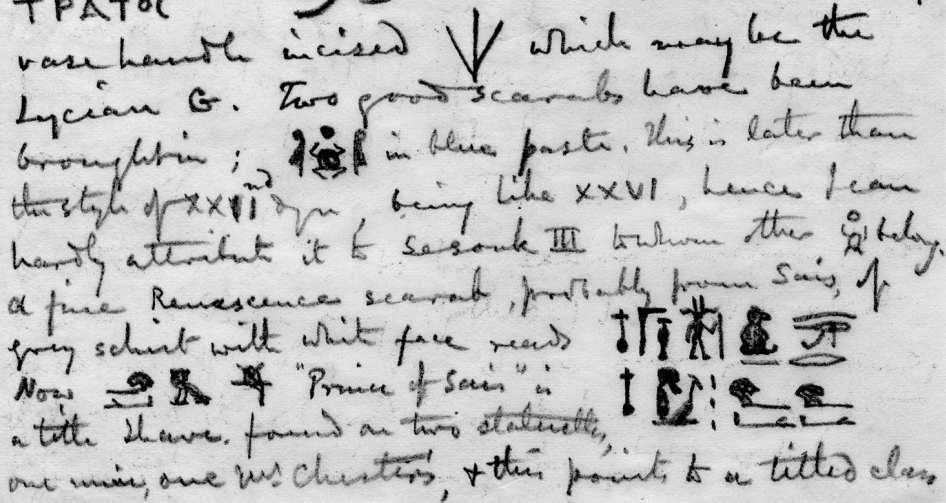 ΤΡΑΤΟC
vase handle incised ↓ which may be the
Lycian G. Two good scarabs have been
brought in; in blue paste. This is later than
the style of XXIInd dyn, being like XXVI, hence I can
hardly attribute it to Sesonk III to whom other belong.
A fine Renascence scarab, probably from Sais, of
grey schist with white face reads
Now "Prince of Sais" is
a title I have found on two statuettes,
one mine, one Mr Chester's, & this points to a titled class